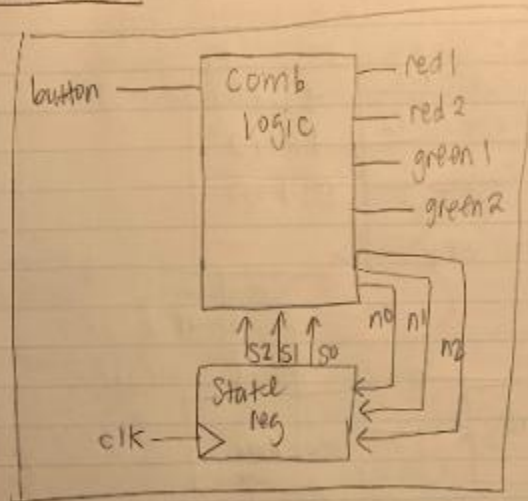 button
comb
logic
red 1
red 2
green 1
green 2
s2 s1 s0
n0 n1 n2
State
reg
clk